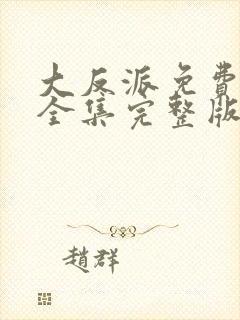 大反派免費
全集完整版
趙群